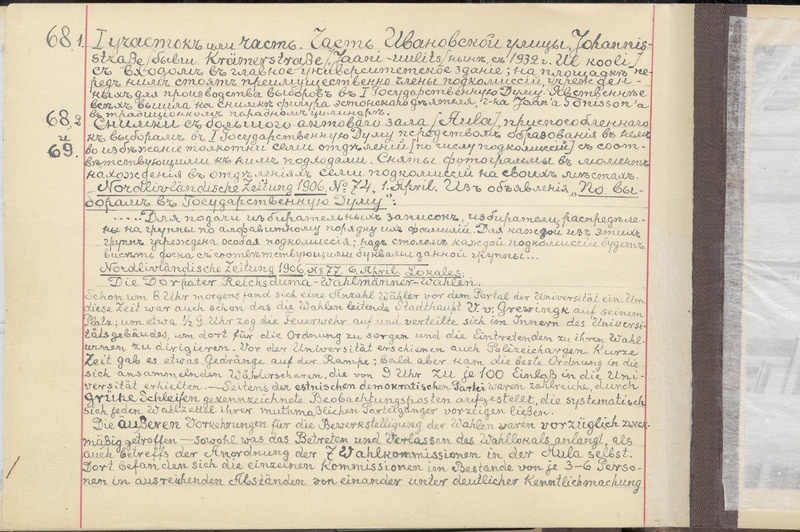 68.1. I участокъ или часть. Часть Ивановской улицы, Johannis-
straße, бывш. Krämerstraße, Jaani-uulits [нынѣ, съ 1932 г. Ülikooli]
съ входомъ въ главное университетское зданіе; на площадкѣ пе-
редъ нимъ стоятъ преимущественно члены подкомиссій, учрежден-
ныхъ для производства выборовъ въ I Государственную Думу. Явственнѣе
всѣхъ вышла на снимкѣ фигура эстонскаго дѣятеля, г-на Jaan'a Tõnisson'a
въ традиціонномъ парадномъ цилиндрѣ.
68.2 Снимки съ большого актоваго зала [Aula], приспособленнаго
и къ выборамъ въ I Государственную Думу посредствомъ образованія въ немъ
69. во избѣжаніе толкотни семи отдѣленій [по числу подкомиссій] съ соот-
вѣтствующими къ нимъ подходами. Сняты фотограммы въ моментъ
нахожденія въ отдѣленіяхъ семи подкомиссій на своихъ мѣстахъ.
Nordlivländische Zeitung 1906, № 74, 1. April. Изъ объявленія „По вы-
борамъ въ Государственную Думу":
.....Для подачи избирательныхъ записокъ, избиратели распредѣле-
ны на группы по алфавитному порядку ихъ фамилій. Для каждой изъ этихъ
группъ учреждена особая подкомиссія; надъ столомъ каждой подкомиссіи будетъ
висѣть доска съ соотвѣтствующими буквами данной группы...
Nordlivländische Zeitung 1906, № 77. 6. April. Lokales:
Die Dorpater Reichsduma-Wahlmänner-Wahlen.
Schon um 8 Uhr morgens fand sich eine Anzahl Wähler vor dem Portal der Universität ein. Um
diese Zeit war auch schon das die Wahlen leitende Stadthaupt V. v. Grewingk auf seinem
Platz; um etwa ½9 Uhr zog die Feuerwehr auf und verteilte sich im Innern des Universi-
tätsgebäudes, um dort für die Ordnung zu sorgen und die Eintretenden zu ihren Wahl-
urnen zu dirigieren. Vor der Universität erschienen auch Polizeichargen. Kurze
Zeit gab es etwas Gedränge auf der Rampe; bald aber kam die beste Ordnung in die
sich ansammelnden Wählerscharen, die von 9 Uhr zu je 100 Einlaß in die Uni-
versität erhielten. — Seitens der estnischen demokratischen Partei waren zahlreiche, durch
grüne Schleifen gekennzeichnete Beobachtungsposten aufgestellt, die systematisch
sich jeden Wahlzettel ihrer mutmaßlichen Parteigänger vorzeigen ließen.
Die äußeren Vorkehrungen für die Bewerkstelligung der Wahlen waren vorzüglich zweck-
mäßig getroffen — sowohl was das Betreten und Verlassen des Wahllokals anlangt, als
auch betreffs der Anordnung der 7 Wahlkommissionen in der Aula selbst.
Dort befanden sich die einzelnen Kommissionen im Bestande von je 3-6 Perso-
nen in ausreichenden Abständen von einander unter deutlicher Kenntlichmachung